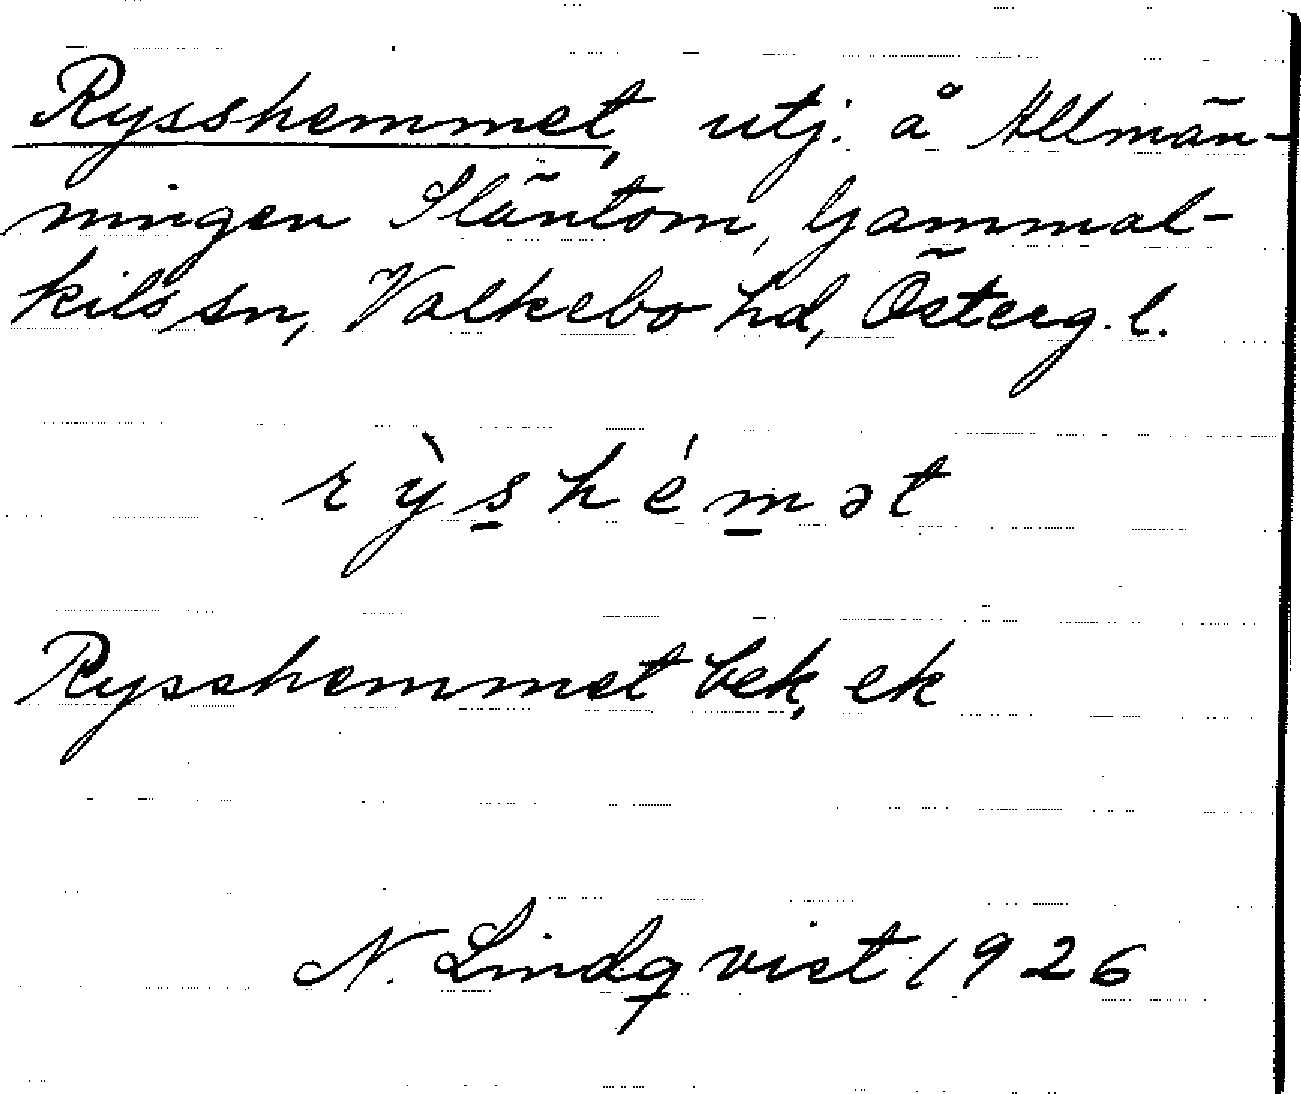 Rysshemmet, utj. å Allmän-
ningen Släntom, Gammal-
kils sn, Valkebo hd, Österg. l.
rỳs̲hém̲ət
Rysshemmet bek, ek
N. Lindqvist 1926